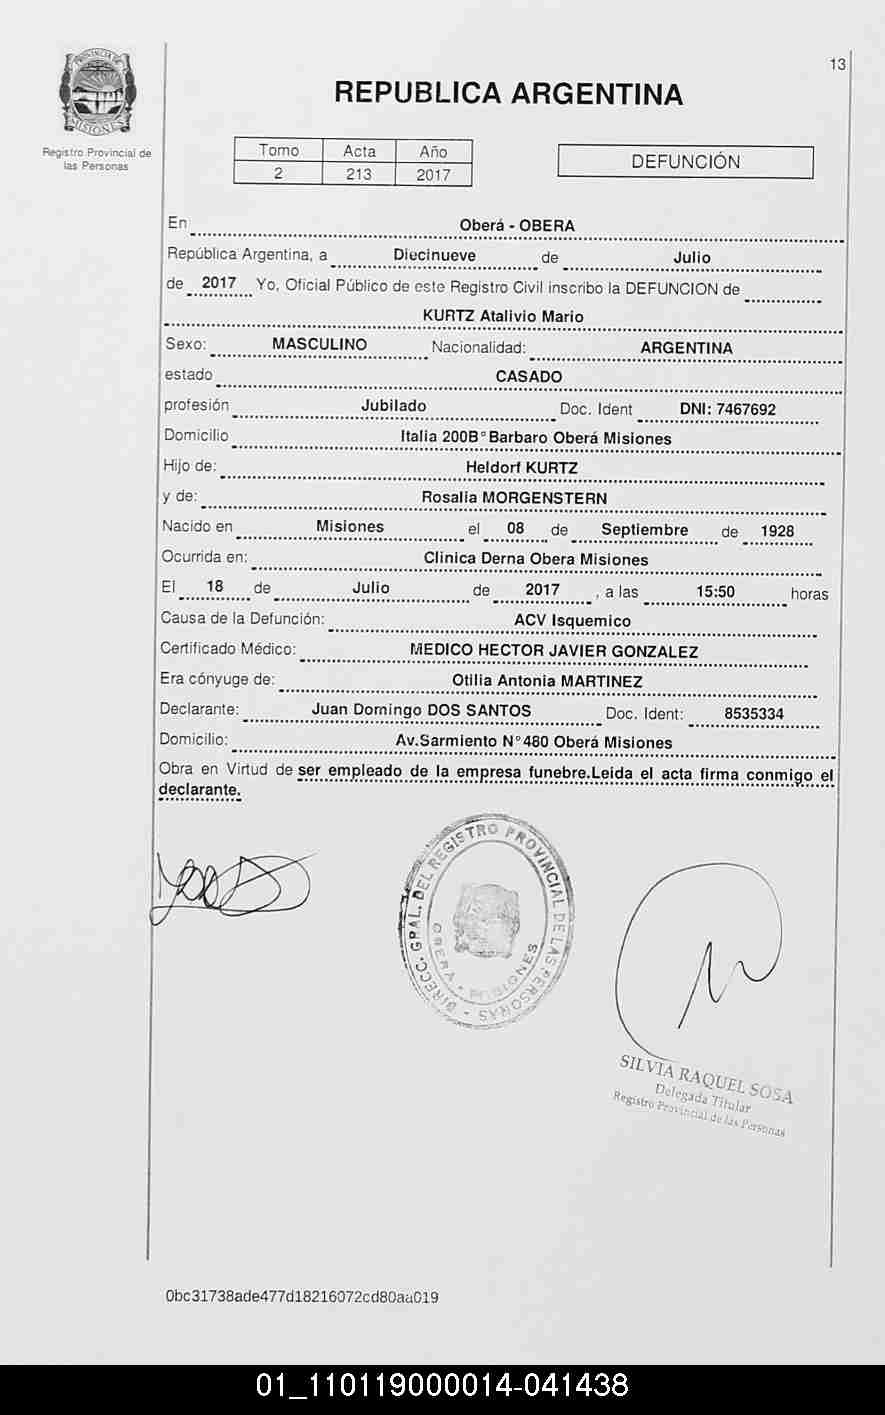 13
PROVINCIA DE
MISIONES
Registro Provincial de
las Personas
REPUBLICA ARGENTINA
Tomo Acta Año
2 213 2017
DEFUNCIÓN
En Oberá - OBERA
República Argentina, a Diecinueve de Julio
de 2017 Yo, Oficial Público de este Registro Civil inscribo la DEFUNCION de
KURTZ Atalivio Mario
Sexo: MASCULINO Nacionalidad: ARGENTINA
estado CASADO
profesión Jubilado Doc. Ident DNI: 7467692
Domicilio Italia 200B° Barbaro Oberá Misiones
Hijo de: Heldorf KURTZ
y de: Rosalia MORGENSTERN
Nacido en Misiones el 08 de Septiembre de 1928
Ocurrida en: Clinica Derna Obera Misiones
El 18 de Julio de 2017 , a las 15:50 horas
Causa de la Defunción: ACV Isquemico
Certificado Médico: MEDICO HECTOR JAVIER GONZALEZ
Era cónyuge de: Otilia Antonia MARTINEZ
Declarante: Juan Domingo DOS SANTOS Doc. Ident: 8535334
Domicilio: Av.Sarmiento N°480 Oberá Misiones
Obra en Virtud de ser empleado de la empresa funebre.Leida el acta firma conmigo el
declarante.
DIRECC. GRAL. DEL REGISTRO PROVINCIAL DE LAS PERSONAS -
OBERA - MISIONES
SILVIA RAQUEL SOSA
Delegada Titular
Registro Provincial de las Personas
0bc31738ade477d18216072cd80aa019
01_110119000014-041438